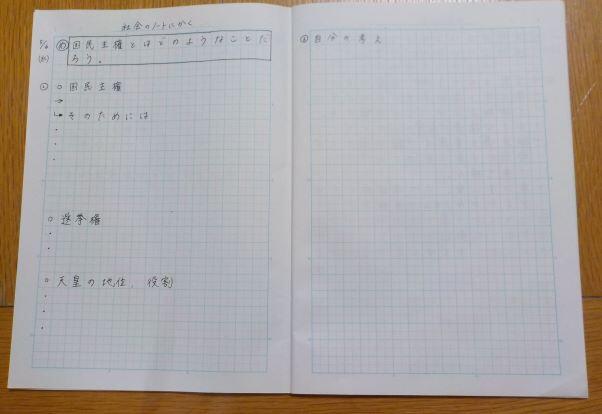 社会のノートにかく
5/6
(水)
め 国民主権とはどのようなことだ
ろう。
○国民主権
→
↳そのためには
・
・
・
○選挙権
・
・
○天皇の地位、役割
・
・
・
自分の考え